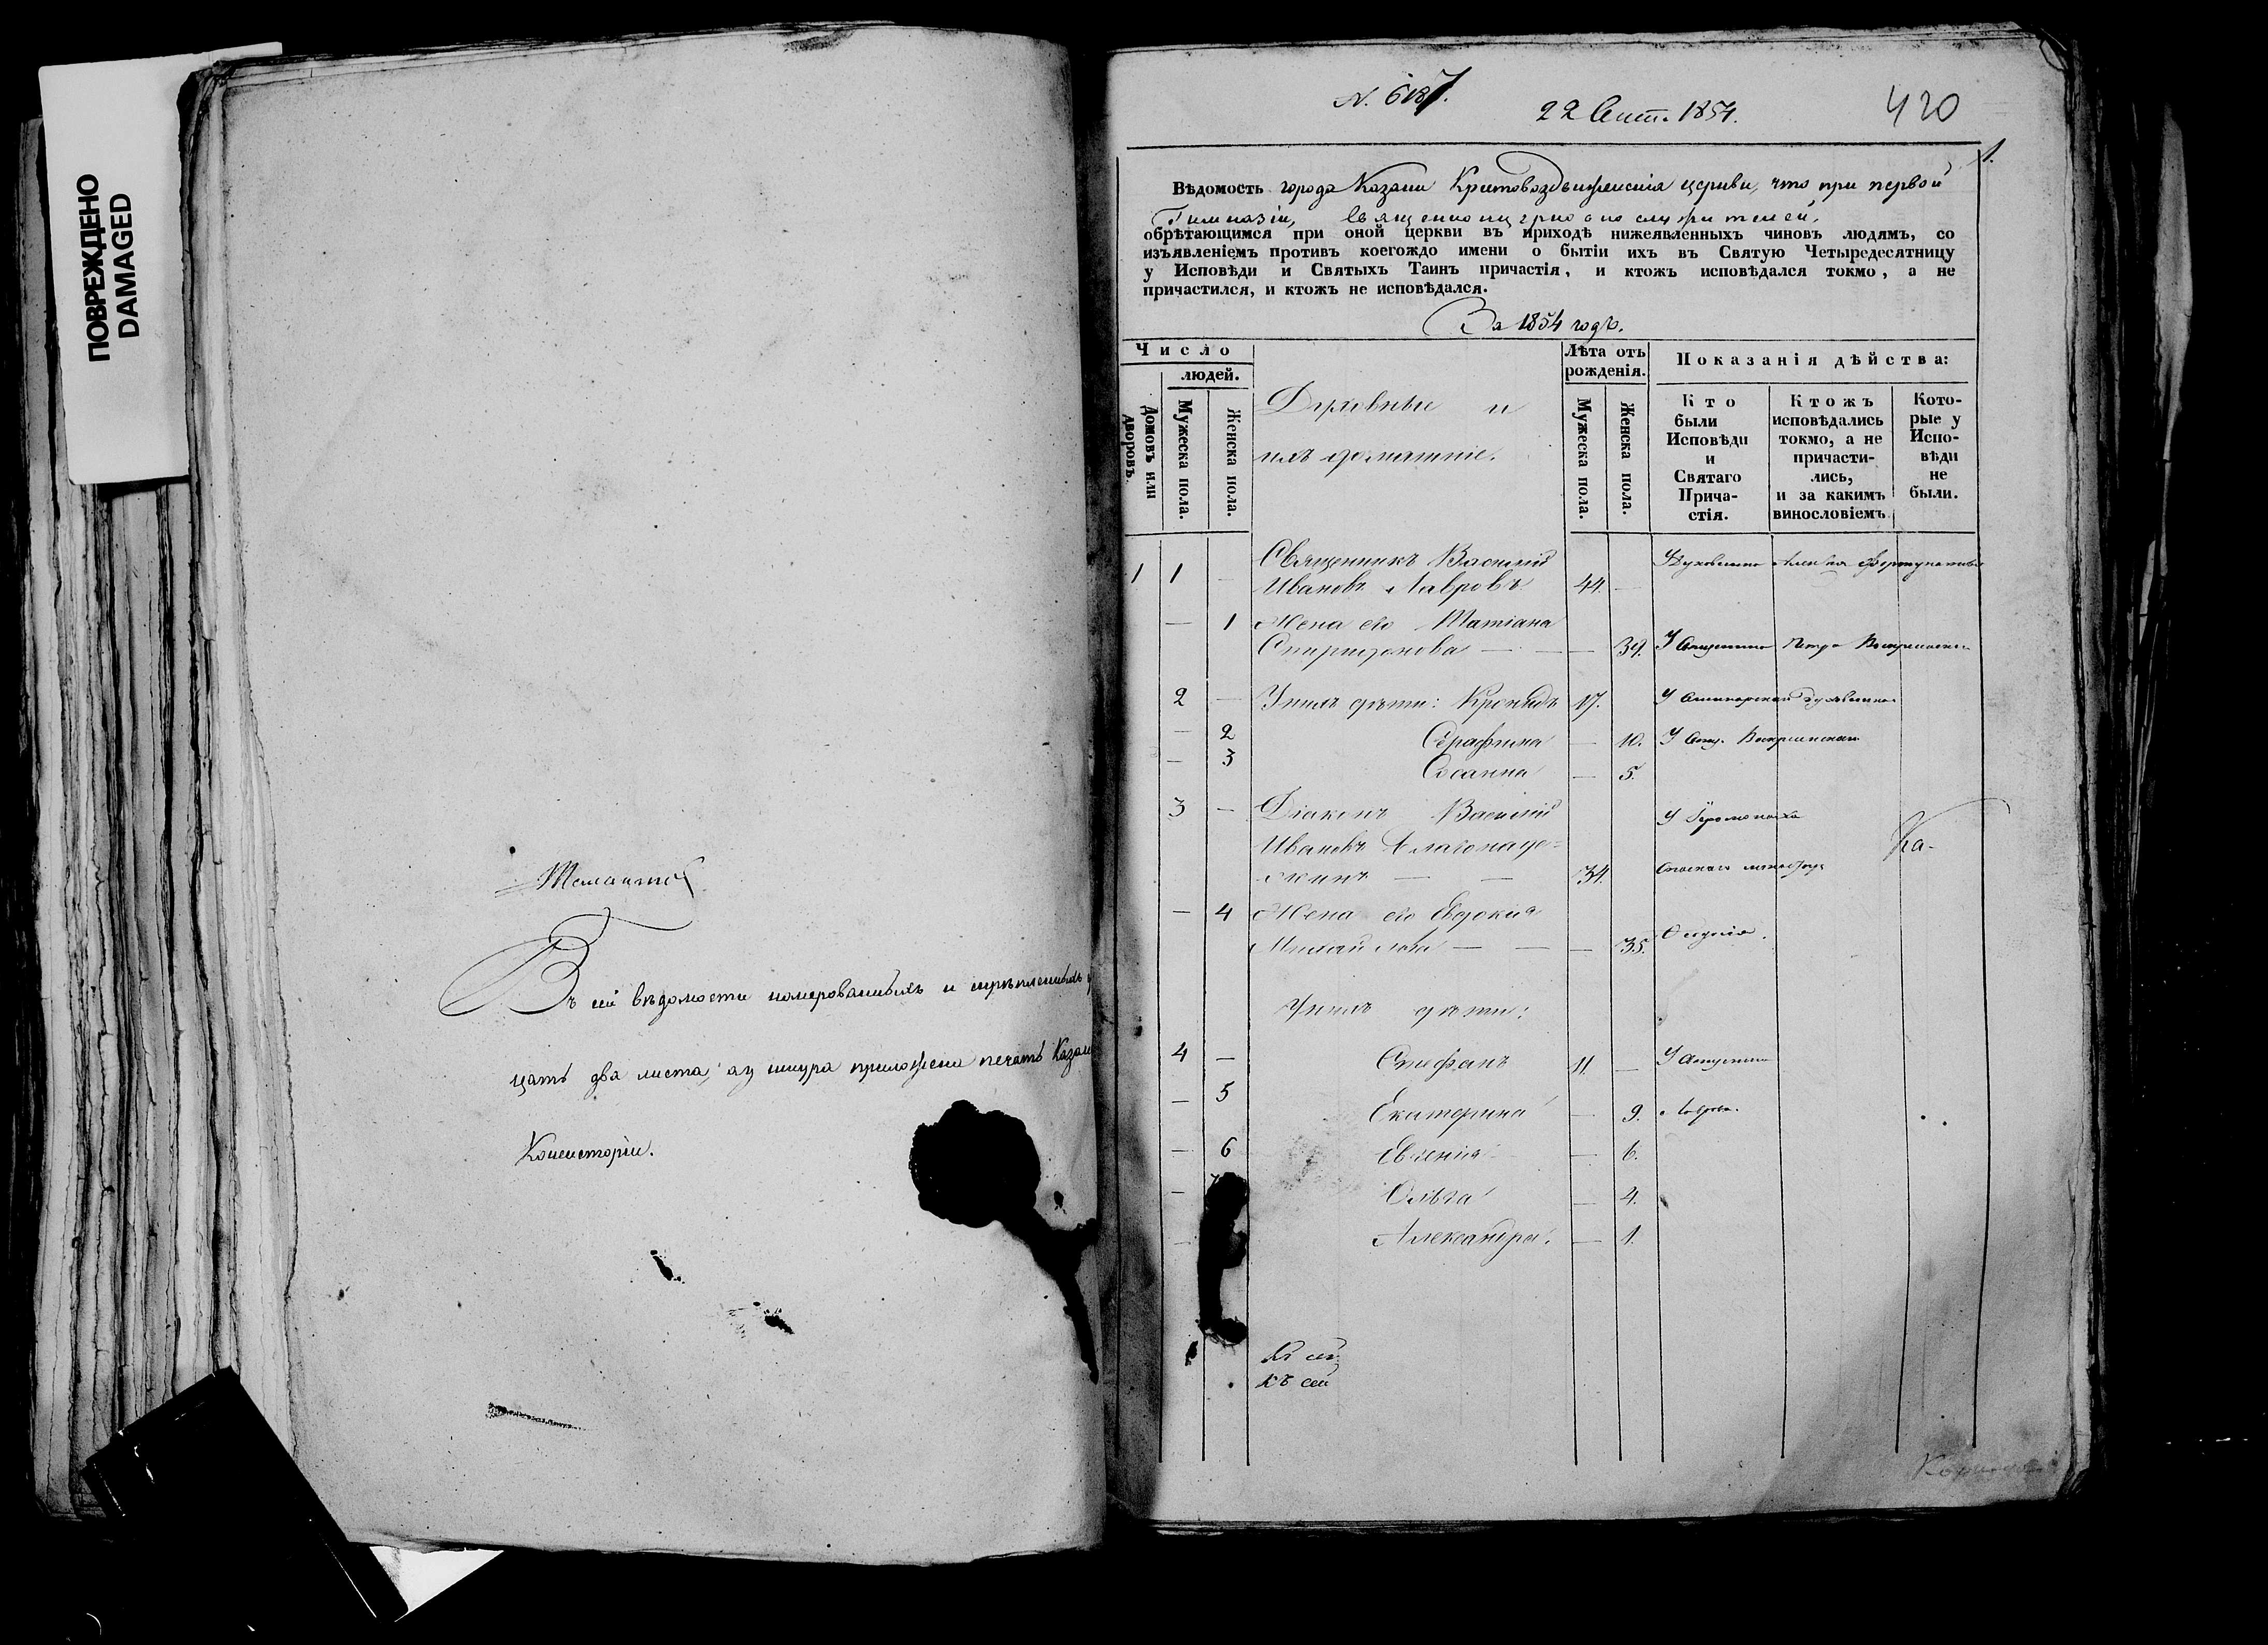 ПОВРЕЖДЕНО
DAMAGED
Въ сей вѣдомости номерованныхъ и скрѣпленныхъ
цать два листа, а у шнура приложена печать Казан
Консисторіи.
N. 6187.
22 Сент. 1854.
420
1.
Вѣдомость города Казани Крестовоздвиженскія церкви, что при первой
Гимназіи, священноцерковнослужителей,
обрѣтающимся при оной церкви въ приходѣ нижеявленныхъ чиновъ людямъ, со
изъявленіемъ противъ коегождо имени о бытіи ихъ въ Святую Четыредесятницу
у Исповѣди и Святыхъ Таинъ причастія, и ктожъ исповѣдался токмо, а не
причастился, и ктожъ не исповѣдался.
За 1854 годъ.
Число
людей.
Домовъ или дворовъ.
Мужеска пола.
Женска пола.
Духовные и
ихъ домашніе.
Лѣта отъ рожденія.
Мужеска пола.
Женска пола.
Показанія дѣйства:
Кто были Исповѣди и Святаго Причастія.
Ктожъ исповѣдались токмо, а не причастились, и за какимъ винословіемъ
Которые у Исповѣди не были.
1 1 Священникъ Василій
Ивановъ Лавровъ 44.
— 1 Жена его Татіана
Спиридонова — — 39. Петра
2 — У нихъ дѣти: Кронидъ 17.
— 2 Серафима — 10.
— 3 Сосанна — 5.
3 — Діаконъ Василій У Іеромонаха
Ивановъ Благонаде-
жинъ — — 34. Спаскаго
Ка-
— 4 Жена его Евдокія
Михайлова — — — 35.
У нихъ дѣти:
4 — Стефанъ 11. —
— 5 Екатерина — 9. Лаврова.
— 6 Евгенія — 6.
— Ольга — 4.
— Александра. — 1.
Къ сей
Къ сей